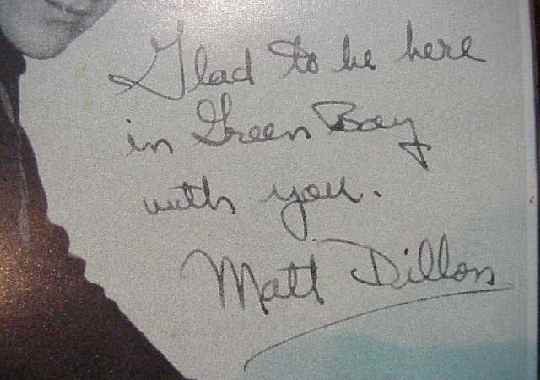 Glad to be here
in Green Bay
with you.
Matt Dillon